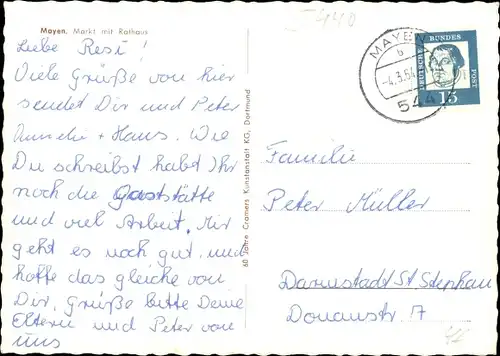 Mayen, Markt mit Rathaus
Liebe Resi!
Viele Grüße von hier
sendet Dir und Peter
Annelie + Hans. Wie
Du schreibst habt Ihr
noch die Gaststätte
und viel Arbeit. Mir
geht es noch gut. und
hoffe das gleiche von
Dir. Grüße bitte Deine
Eltern und Peter von
uns
60 Jahre Cramers Kunstanstalt KG, Dortmund
440
MAYEN
b
-4.3.64
544
DEUTSCHE BUNDESPOST
15
Familie
Peter Müller
Darmstadt St. Stephan
Donaustr. 17